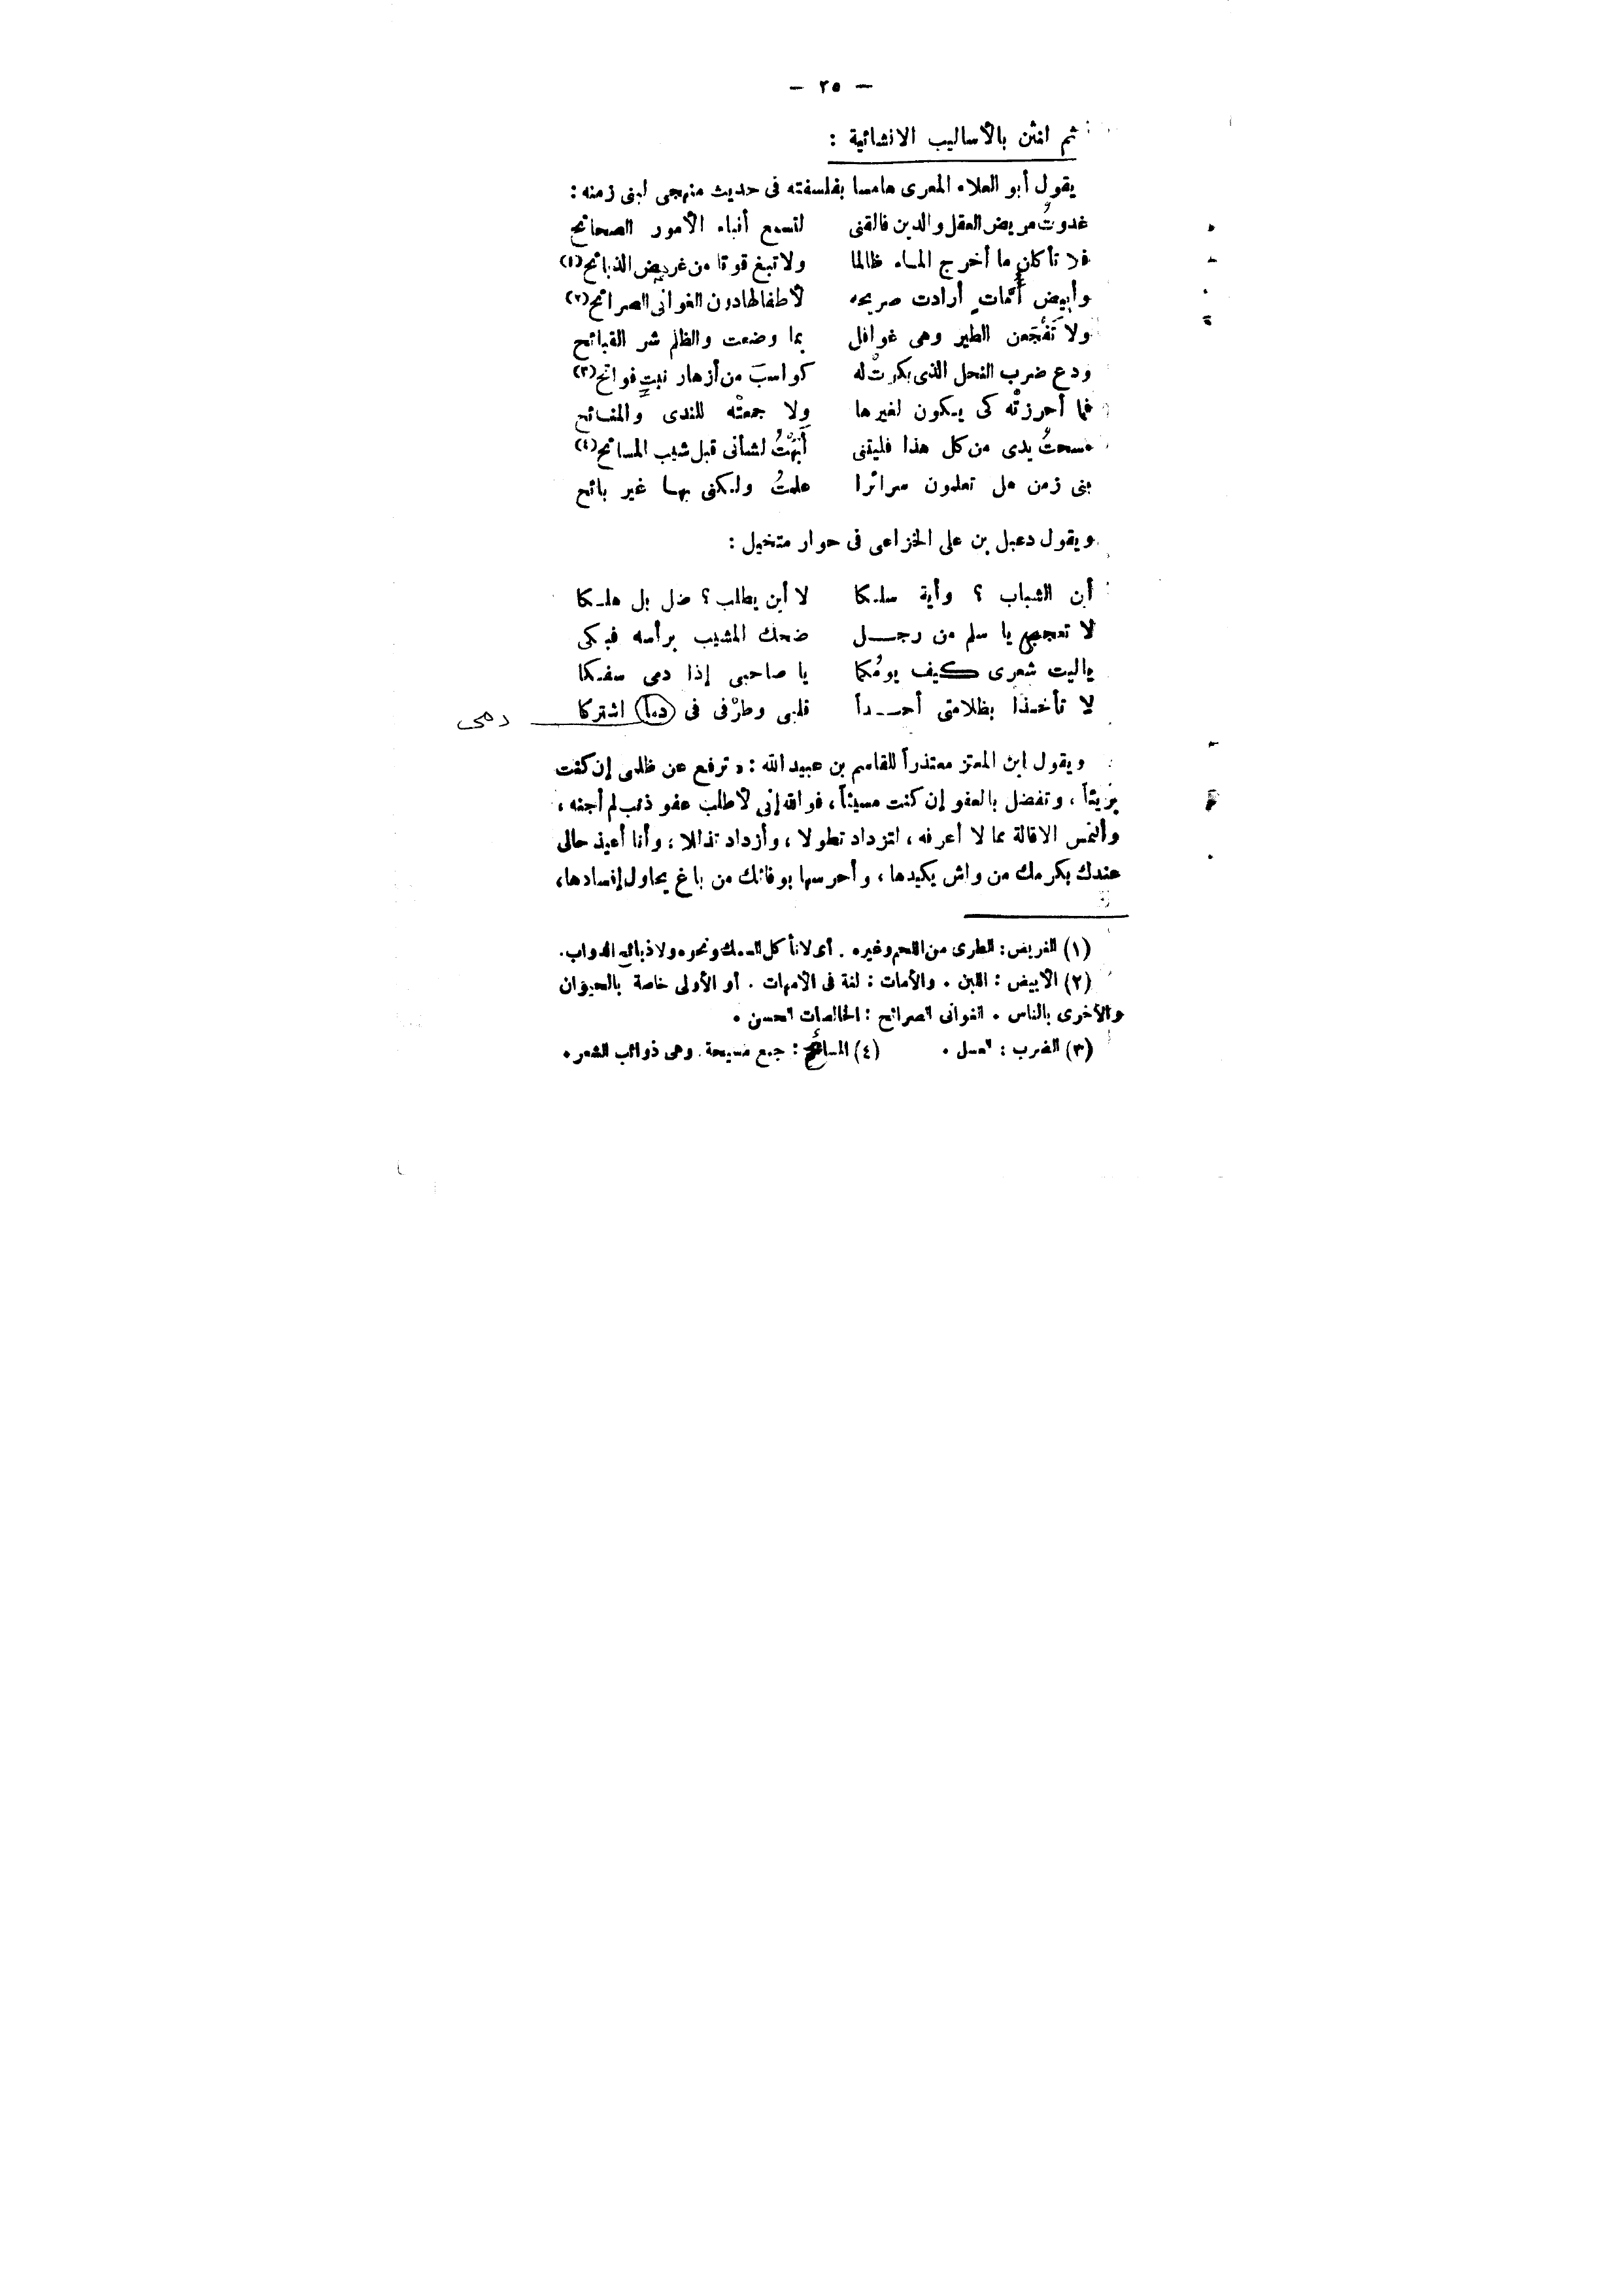 — ٢٥ —
ثم انثن بالأساليب الانشائية :
يقول أبو العلاء المعرى هامسا بفلسفته فى حديث منهجى لبنى زمنه :
غدوتُ مريض العقل والدين فالقنى لتسمع أنباء الأمور الصحائح
فلا تأكلن ما أخرج الماء ظالما ولا تبغ قوتا من غريض الذبائح(١)
وأبيض أُمّات أرادت صريحه لأطفالها دون الغوانى الصرائح(٢)
ولا تَفْجَعن الطير وهى غوافل بما وضعت والظلم شر القبائح
ودع ضرب النحل الذى بكرتْ له كواسبَ من أزهار نبتٍ فوائح(٣)
فما أحرزتْه كى يكون لغيرها ولا جمعتْه للندى والمنائح
مسحتُ يدى من كل هذا فليتنى أَبَهْتُ لشأنى قبل شيب المسائح(٤)
بنى زمن هل تعلمون سرائرا علمتُ ولكنى بها غير بائح
ويقول دعبل بن على الخزاعى فى حوار متخيل :
أين الشباب ؟ وأية سلكا لا أين يطلب ؟ ضل بل هلكا
لا تعجبى يا سلم من رجل ضحك المشيب برأسه فبكى
ياليت شعرى كيف يومُكما يا صاحبى إذا دمى سفكا
لا تأخذا بظلامتى أحداً قلبى وطرْفى فى دماً اشتركا دمى
ويقول ابن المعتز معتذراً للقاسم بن عبيد الله : « ترفع عن ظلمى إن كنت
بريئاً ، وتفضل بالعفو إن كنت مسيئاً ، فوالله إنى لأطلب عفو ذنب لم أجنه ،
وألتمس الاقالة مما لا أعرفه ، لتزداد تطولا ، وأزداد تذللا ؛ وأنا أعيذ حالى
عندك بكرمك من واش يكيدها ، وأحرسها بوفائك من باغ يحاول إفسادها ،
(١) الغريض : الطرى من اللحم وغيره . أى لا تأكل السمك ونحوه ولا ذبائح الدواب .
(٢) الأبيض : اللبن . والأمات : لغة فى الأمهات . أو الأولى خاصة بالحيوان
والأخرى بالناس . الغوانى الصرائح : الخالصات الحسن .
(٣) الضرب : العسل . (٤) المسائح : جمع مسيحة وهى ذوائب الشعر .